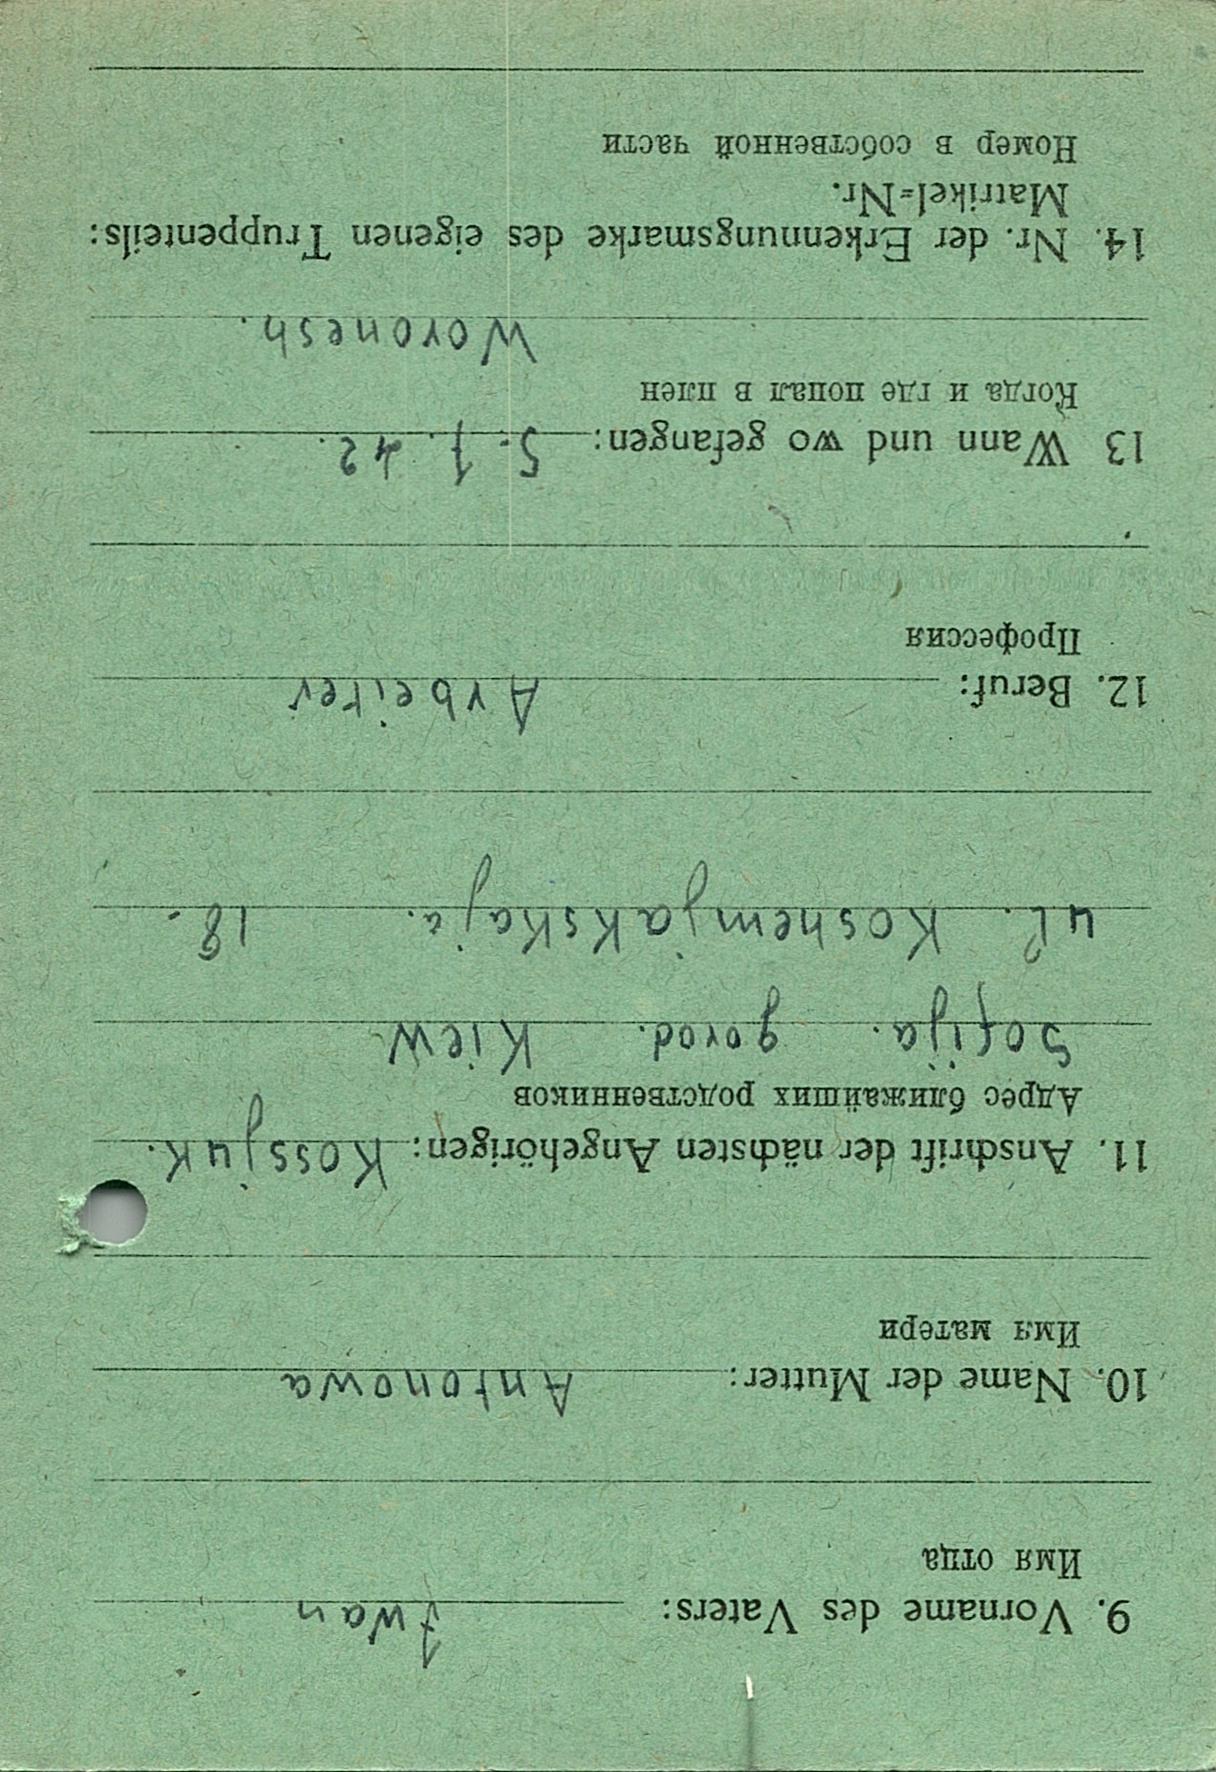 9. Vorname des Vaters: Iwan
Имя отца
10. Name der Mutter: Antonowa
Имя матери
11. Anschrift der nächsten Angehörigen: Kossjuk.
Адрес ближайших родственников
Sofija. gorod. Kiew
ul. Koshemjakskaja. 18.
12. Beruf: Arbeiter
Профессия
13 Wann und wo gefangen: 5. 7. 42.
Когда и где попал в плен
Woronesh.
14. Nr. der Erkennungsmarke des eigenen Truppenteils:
Matrikel=Nr.
Номер в собственной части